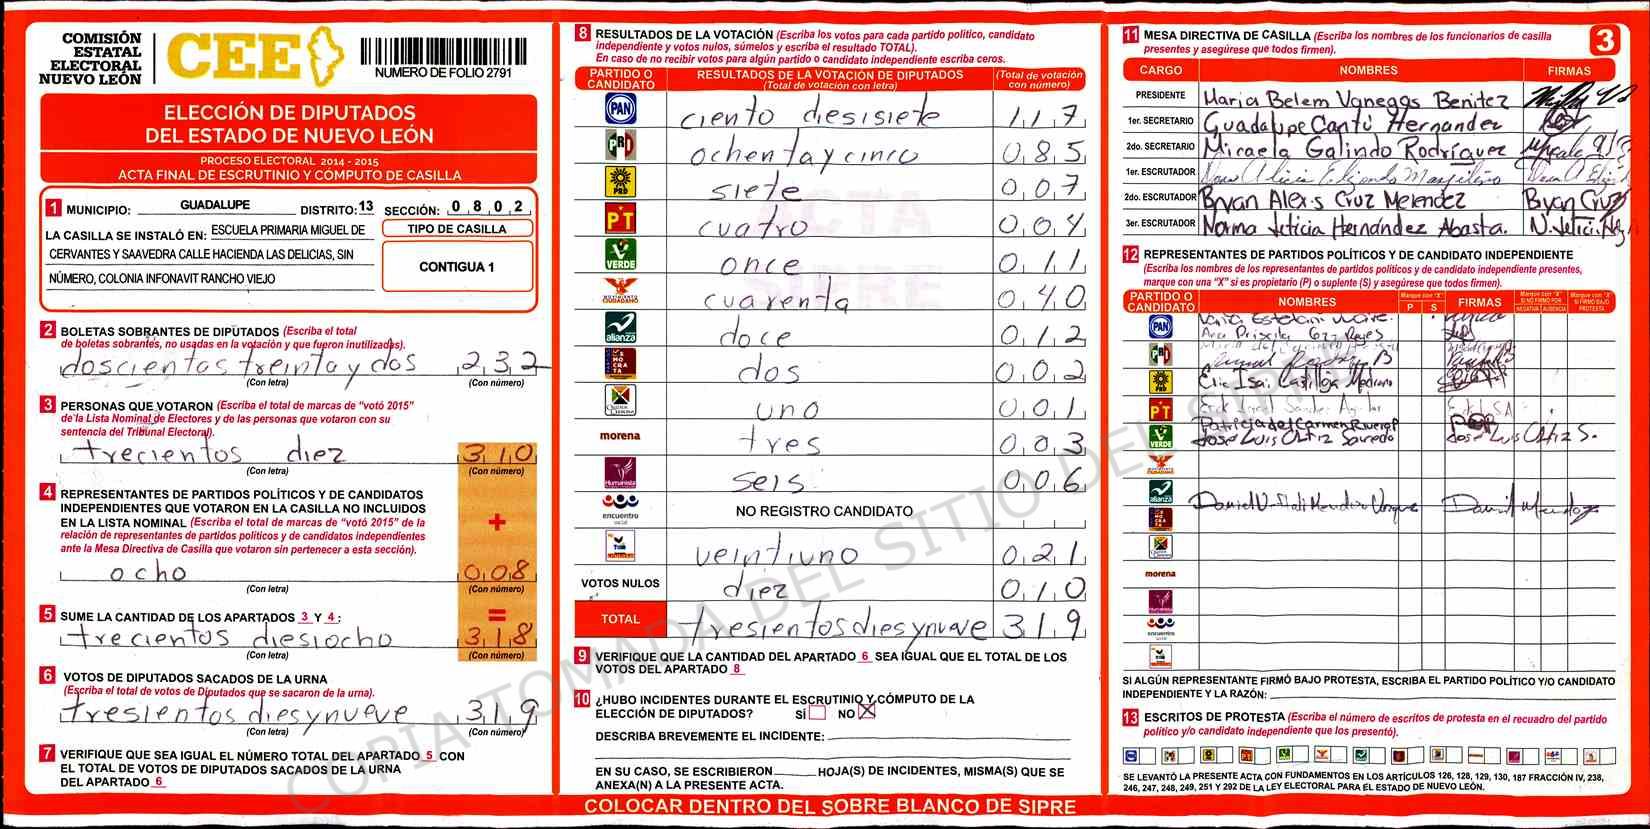 COMISIÓN
ESTATAL
ELECTORAL
NUEVO LEÓN
CEE
NUMERO DE FOLIO 2791
ELECCIÓN DE DIPUTADOS
DEL ESTADO DE NUEVO LEÓN
PROCESO ELECTORAL 2014 - 2015
ACTA FINAL DE ESCRUTINIO Y CÓMPUTO DE CASILLA
1 MUNICIPIO: GUADALUPE DISTRITO: 13 SECCIÓN: 0 8 0 2
LA CASILLA SE INSTALÓ EN: ESCUELA PRIMARIA MIGUEL DE
CERVANTES Y SAAVEDRA CALLE HACIENDA LAS DELICIAS, SIN
NÚMERO, COLONIA INFONAVIT RANCHO VIEJO
TIPO DE CASILLA
CONTIGUA 1
2 BOLETAS SOBRANTES DE DIPUTADOS (Escriba el total
de boletas sobrantes, no usadas en la votación y que fueron inutilizadas).
doscientos treinta y dos 2 3 2
(Con letra) (Con número)
3 PERSONAS QUE VOTARON (Escriba el total de marcas de “votó 2015”
de la Lista Nominal de Electores y de las personas que votaron con su
sentencia del Tribunal Electoral).
trecientos diez 3 1 0
(Con letra) (Con número)
4 REPRESENTANTES DE PARTIDOS POLÍTICOS Y DE CANDIDATOS
INDEPENDIENTES QUE VOTARON EN LA CASILLA NO INCLUIDOS
EN LA LISTA NOMINAL (Escriba el total de marcas de “votó 2015” de la
relación de representantes de partidos políticos y de candidatos independientes
ante la Mesa Directiva de Casilla que votaron sin pertenecer a esta sección).
+
ocho 0 0 8
(Con letra) (Con número)
5 SUME LA CANTIDAD DE LOS APARTADOS 3 Y 4: =
trecientos diesiocho 3 1 8
(Con letra) (Con número)
6 VOTOS DE DIPUTADOS SACADOS DE LA URNA
(Escriba el total de votos de Diputados que se sacaron de la urna).
tresientos diesynueve 3 1 9
(Con letra) (Con número)
7 VERIFIQUE QUE SEA IGUAL EL NÚMERO TOTAL DEL APARTADO 5 CON
EL TOTAL DE VOTOS DE DIPUTADOS SACADOS DE LA URNA
DEL APARTADO 6
8 RESULTADOS DE LA VOTACIÓN (Escriba los votos para cada partido político, candidato
independiente y votos nulos, súmelos y escriba el resultado TOTAL).
En caso de no recibir votos para algún partido o candidato independiente escriba ceros.
PARTIDO O CANDIDATO RESULTADOS DE LA VOTACIÓN DE DIPUTADOS (Total de votación con letra) (Total de votación con número)
PAN ciento desisiete 1 1 7
PRI ochenta y cinco 0 8 5
PRD siete 0 0 7
PT cuatro 0 0 4
VERDE once 0 1 1
MOVIMIENTO CIUDADANO cuarenta 0 4 0
alianza doce 0 1 2
DEMÓCRATA dos 0 0 2
Cruzada Ciudadana uno 0 0 1
morena tres 0 0 3
Humanista seis 0 0 6
encuentro social NO REGISTRO CANDIDATO
veintiuno 0 2 1
VOTOS NULOS diez 0 1 0
TOTAL tresientos diesynueve 3 1 9
9 VERIFIQUE QUE LA CANTIDAD DEL APARTADO 6 SEA IGUAL QUE EL TOTAL DE LOS
VOTOS DEL APARTADO 8
10 ¿HUBO INCIDENTES DURANTE EL ESCRUTINIO Y CÓMPUTO DE LA
ELECCIÓN DE DIPUTADOS? SÍ NO X
DESCRIBA BREVEMENTE EL INCIDENTE:
EN SU CASO, SE ESCRIBIERON HOJA(S) DE INCIDENTES, MISMA(S) QUE SE
ANEXA(N) A LA PRESENTE ACTA.
COLOCAR DENTRO DEL SOBRE BLANCO DE SIPRE
11 MESA DIRECTIVA DE CASILLA (Escriba los nombres de los funcionarios de casilla
presentes y asegúrese que todos firmen).
3
CARGO NOMBRES FIRMAS
PRESIDENTE Maria Belem Vanegas Benitez
1er. SECRETARIO Guadalupe Cantú Hernandez
2do. SECRETARIO Micaela Galindo Rodríguez
1er. ESCRUTADOR Alicia
2do. ESCRUTADOR Bryan Alexis Cruz Melendez Bryan Cruz
3er. ESCRUTADOR Norma Leticia Hernández Abasta. N. Letici.
12 REPRESENTANTES DE PARTIDOS POLÍTICOS Y DE CANDIDATO INDEPENDIENTE
(Escriba los nombres de los representantes de partidos políticos y de candidato independiente presentes,
marque con una “X” si es propietario (P) o suplente (S) y asegúrese que todos firmen).
PARTIDO O CANDIDATO NOMBRES Marque con “X” P S FIRMAS Marque con “X” SI NO FIRMÓ POR NEGATIVA AUSENCIA Marque con “X” SI FIRMÓ BAJO PROTESTA
PAN
Ana Priscila Gzz Reyes
PRI
PRD Eric Isai Castillo Medrano
PT Erick Sanchez Aguilar
Patricia del Carmen Rivera
VERDE Jose Luis Ortiz Saucedo Jose Luis Ortiz S.
MOVIMIENTO CIUDADANO
alianza
Daniel Mendoza Daniel Mendoza
morena
Humanista
encuentro social
SI ALGÚN REPRESENTANTE FIRMÓ BAJO PROTESTA, ESCRIBA EL PARTIDO POLÍTICO Y/O CANDIDATO
INDEPENDIENTE Y LA RAZÓN:
13 ESCRITOS DE PROTESTA (Escriba el número de escritos de protesta en el recuadro del partido
político y/o candidato independiente que los presentó).
SE LEVANTÓ LA PRESENTE ACTA CON FUNDAMENTOS EN LOS ARTÍCULOS 126, 128, 129, 130, 187 FRACCIÓN IV, 238,
246, 247, 248, 249, 251 Y 292 DE LA LEY ELECTORAL PARA EL ESTADO DE NUEVO LEÓN.
ACTA
SIPRE
COPIA TOMADA DEL SITIO DEL SIPRE